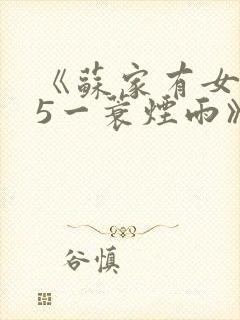 《蘇家有女
5一蓑煙雨》
谷慎